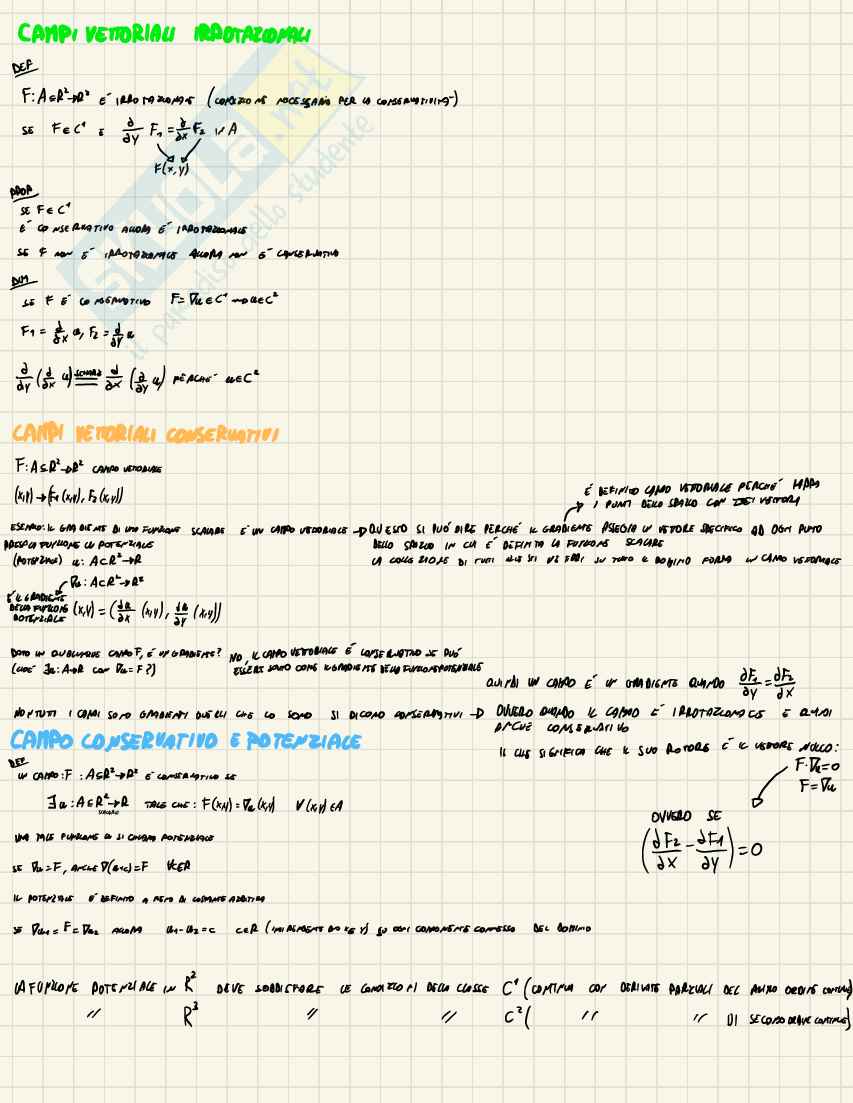 CAMPI VETTORIALI IRROTAZIONALI
DEF
F: A⊆R²→R² E' IRROTAZIONALE (CONDIZIONE NECESSARIA PER LA CONSERVATIVITA')
SE F∈C¹ E ∂/∂y F₁ = ∂/∂x F₂ IN A
F(x,y)
PROP
SE F∈C¹
E' CONSERVATIVO ALLORA E' IRROTAZIONALE
SE F NON E' IRROTAZIONALE ALLORA NON E' CONSERVATIVO
DIM
SE F E' CONSERVATIVO F=∇u∈C¹ → u∈C²
F₁ = ∂/∂x u, F₂ = ∂/∂y u
∂/∂y (∂/∂x u) = ∂/∂x (∂/∂y u) PERCHE' u∈C²
CAMPI VETTORIALI CONSERVATIVI
F: A⊆R²→R² CAMPO VETTORIALE
(x,y) → (F₁(x,y), F₂(x,y))
E' DEFINITO CAMPO VETTORIALE PERCHE' MAPPA
I PUNTI DELLO SPAZIO CON DEI VETTORI
ESEMPIO: IL GRADIENTE DI UNA FUNZIONE SCALARE E' UN CAMPO VETTORIALE → QUESTO SI PUO' DIRE PERCHE' IL GRADIENTE ASSEGNA UN VETTORE SPECIFICO AD OGNI PUNTO
DELLO SPAZIO IN CUI E' DEFINITA LA FUNZIONE SCALARE
LA COLLEZIONE DI TUTTI QUESTI VETTORI SU TUTTO IL DOMINIO FORMA UN CAMPO VETTORIALE
PRESA LA FUNZIONE POTENZIALE
(POTENZIALE) u: A⊂R²→R
∇u: A⊂R²→R²
E' IL GRADIENTE
DELLA FUNZIONE
POTENZIALE
(x,y) = (∂u/∂x (x,y), ∂u/∂y (x,y))
DATO UN QUALUNQUE CAMPO F, E' UN GRADIENTE?
(CIOE' ∃u: A→R CON ∇u=F?)
NO, IL CAMPO VETTORIALE E' CONSERVATIVO SE PUO'
ESSERE COME IL GRADIENTE DELLA FUNZIONE POTENZIALE
QUINDI UN CAMPO E' UN GRADIENTE QUANDO ∂F₁/∂y = ∂F₂/∂x
NON TUTTI I CAMPI SONO GRADIENTI QUELLI CHE LO SONO SI DICONO CONSERVATIVI → OVVERO QUANDO IL CAMPO E' IRROTAZIONALE E QUINDI
ANCHE CONSERVATIVO
IL CHE SIGNIFICA CHE IL SUO ROTORE E' IL VETTORE NULLO:
F·∇u=0
F=∇u
OVVERO SE
(∂F₂/∂x − ∂F₁/∂y) = 0
CAMPO CONSERVATIVO E POTENZIALE
DEF
UN CAMPO: F: A⊆R²→R² E' CONSERVATIVO SE
∃u: A⊆R²→R TALE CHE: F(x,y)=∇u(x,y) ∀(x,y)∈A
SCALARE
UNA TALE FUNZIONE u SI CHIAMA POTENZIALE
SE ∇u=F, ANCHE ∇(u+c)=F ∀c∈R
IL POTENZIALE E' DEFINITO A MENO DI COSTANTE ADDITIVA
SE ∇u₁ = F = ∇u₂ ALLORA u₁−u₂=c c∈R (INDIPENDENTE DA x E y) SU OGNI COMPONENTE CONNESSO DEL DOMINIO
LA FUNZIONE POTENZIALE IN R² DEVE SODDISFARE LE CONDIZIONI DELLA CLASSE C¹ (CONTINUA CON DERIVATE PARZIALI DEL PRIMO ORDINE CONTINUE)
// R³ // // C² ( // // DI SECONDO ORDINE CONTINUE)
SKUOLA.net
il paradiso dello studente